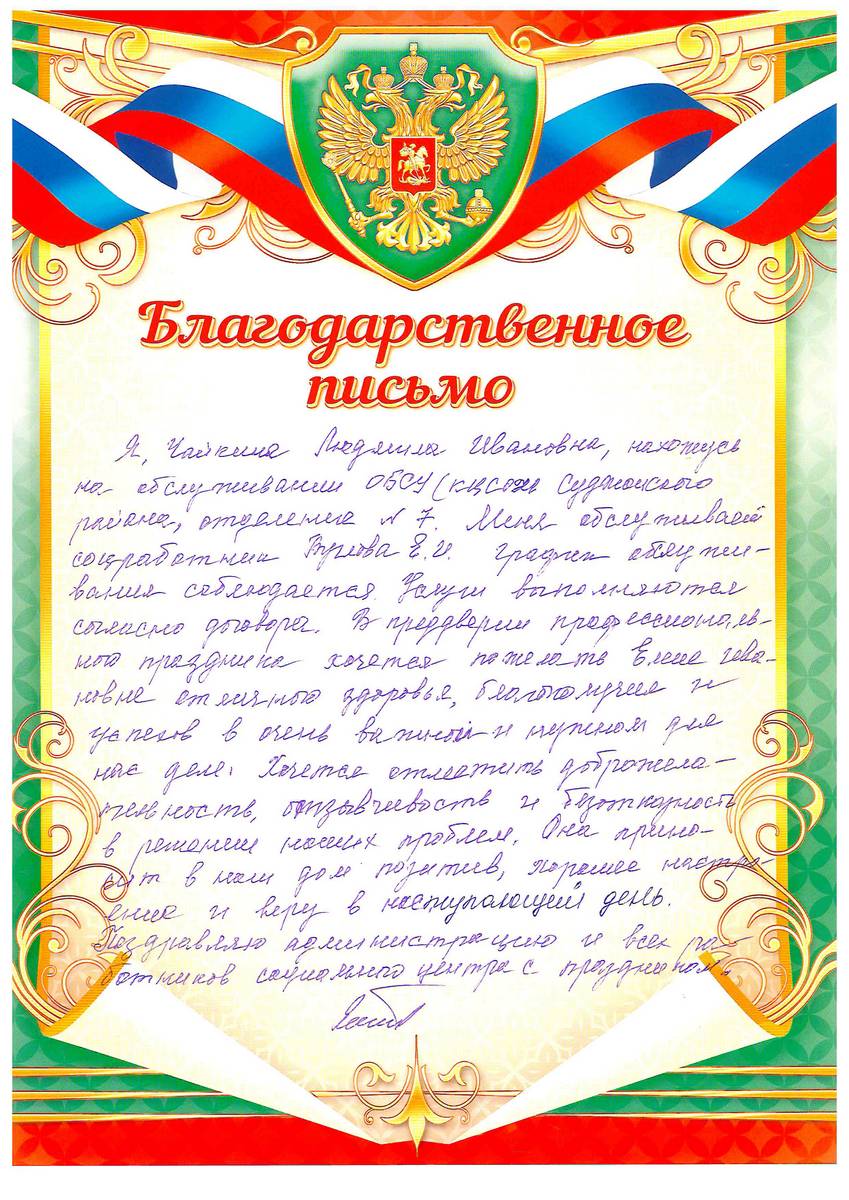 Благодарственное
письмо
Я, Чайкина Людмила Ивановна, нахожусь
на обслуживании ОБСУ (КЦСОН Суджанского
района, отделение № 7. Меня обслуживает
соцработник Е.И. График обслужи-
вания соблюдается. Услуги выполняются
согласно договора. В преддверии профессиональ-
ного праздника хочется пожелать Елене Ива-
новне отличного здоровья, благополучия и
успехов в очень важном и нужном для
нас деле. Хочется отметить доброжела-
тельность, отзывчивость и безотказность
в решении наших проблем. Она прино-
сит в наш дом позитив, хорошее настро-
ение и веру в наступающий день.
Поздравляю администрацию и всех ра-
ботников социального центра с праздником